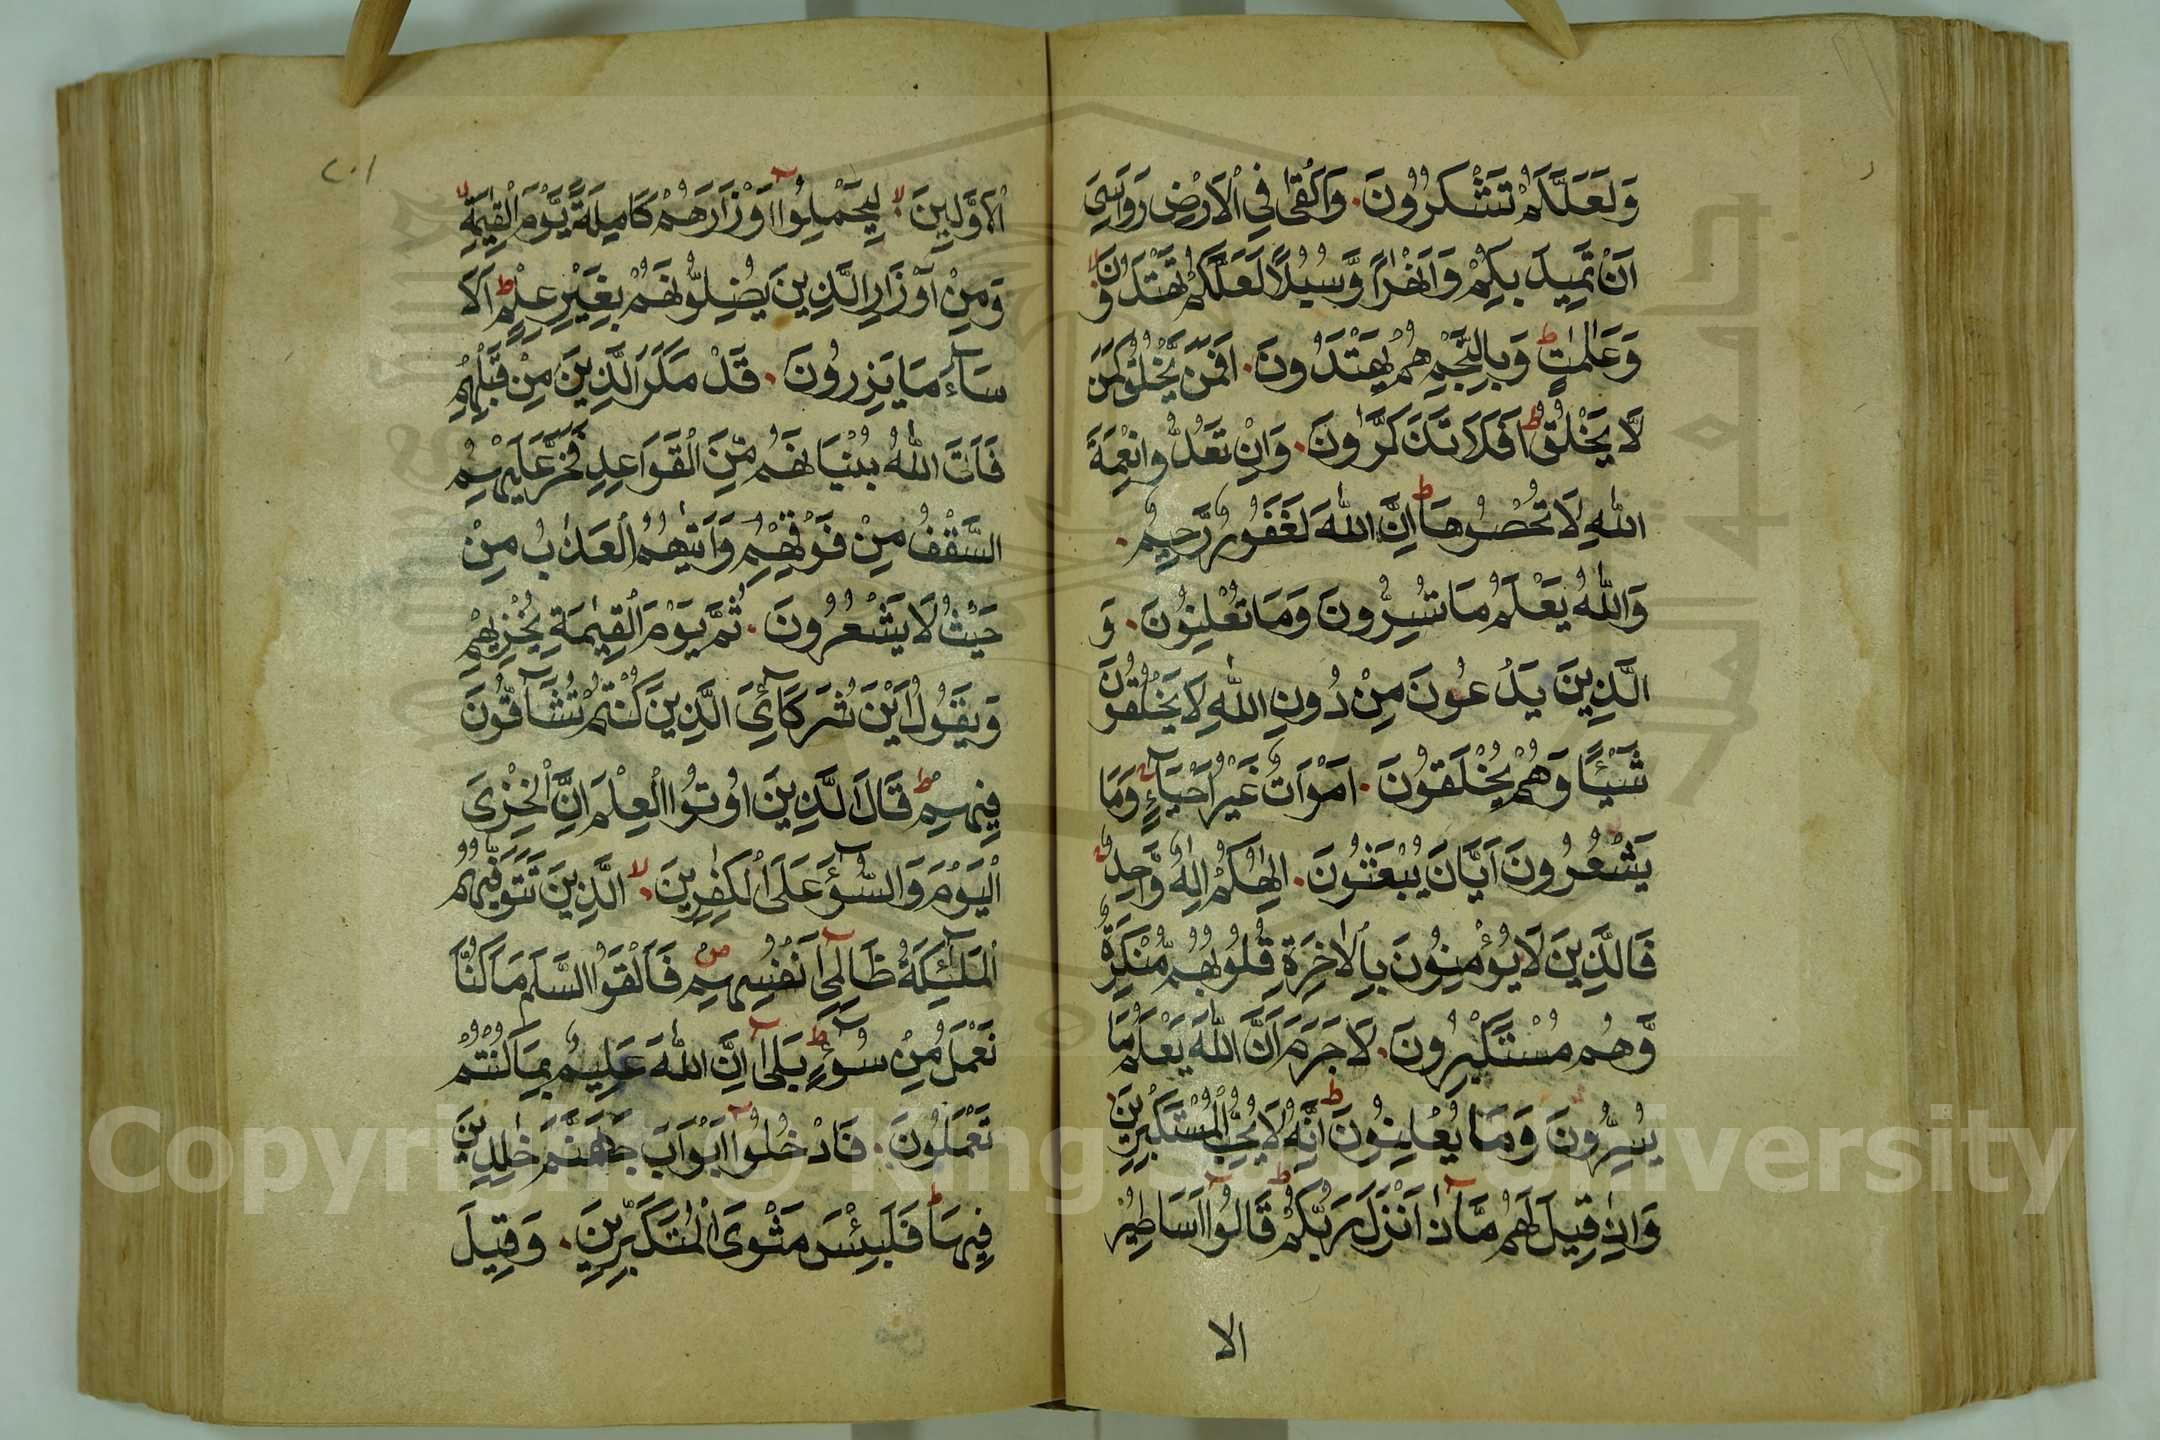 وَلَعَلَّكُمْ تَشْكُرُونَ. وَاَلْقٰى فِي الْاَرْضِ رَوَاسِيَ
اَنْ تَمِيدَ بِكُمْ وَاَنْهٰرًا وَّسُبُلًا لَعَلَّكُمْ تَهْتَدُونَ لا
وَعَلٰمٰتٍ ط وَبِالنَّجْمِ هُمْ يَهْتَدُونَ. اَفَمَنْ يَّخْلُقُ كَمَنْ
لَّا يَخْلُقُ ط اَفَلَا تَذَكَّرُونَ. وَاِنْ تَعُدُّوا نِعْمَةَ
اللّٰهِ لَا تُحْصُوهَا ط اِنَّ اللّٰهَ لَغَفُورٌ رَّحِيمٌ.
وَاللّٰهُ يَعْلَمُ مَا تُسِرُّونَ وَمَا تُعْلِنُونَ. وَ
الَّذِينَ يَدْعُونَ مِنْ دُونِ اللّٰهِ لَا يَخْلُقُونَ
شَيْئًا وَهُمْ يُخْلَقُونَ. اَمْوَاتٌ غَيْرُ اَحْيَآءٍ وَمَا
يَشْعُرُونَ اَيَّانَ يُبْعَثُونَ. اِلٰهُكُمْ اِلٰهٌ وَّاحِدٌ
فَالَّذِينَ لَا يُؤْمِنُونَ بِالْاٰخِرَةِ قُلُوبُهُمْ مُّنْكِرَةٌ
وَّهُم مُسْتَكْبِرُونَ. لَا جَرَمَ اَنَّ اللّٰهَ يَعْلَمُ مَا
يُسِرُّونَ وَمَا يُعْلِنُونَ ط اِنَّهُ لَا يُحِبُّ الْمُسْتَكْبِرِينَ
وَاِذَا قِيلَ لَهُمْ مَّآذَا اَنْزَلَ رَبُّكُمْ ط قَالُوٓا اَسَاطِيرُ
الا
٢٠١
الْاَوَّلِينَ. لا لِيَحْمِلُوٓا اَوْزَارَهُمْ كَامِلَةً يَّوْمَ الْقِيٰمَةِ لا
وَمِنْ اَوْزَارِ الَّذِينَ يُضِلُّونَهُمْ بِغَيْرِ عِلْمٍ ط اَلَا
سَآءَ مَا يَزِرُونَ. قَدْ مَكَرَ الَّذِينَ مِنْ قَبْلِهِمْ
فَاَتَى اللّٰهُ بُنْيَانَهُمْ مِّنَ الْقَوَاعِدِ فَخَرَّ عَلَيْهِمُ
السَّقْفُ مِنْ فَوْقِهِمْ وَاَتٰىهُمُ الْعَذَابُ مِنْ
حَيْثُ لَا يَشْعُرُونَ. ثُمَّ يَوْمَ الْقِيٰمَةِ يُخْزِيهِمْ
وَيَقُولُ اَيْنَ شُرَكَآئِيَ الَّذِينَ كُنْتُمْ تُشَآقُّونَ
فِيهِمْ ط قَالَ الَّذِينَ اُوتُوا الْعِلْمَ اِنَّ الْخِزْيَ
الْيَوْمَ وَالسُّوٓءَ عَلَى الْكٰفِرِينَ. لا الَّذِينَ تَتَوَفّٰىهُمُ
الْمَلٰٓئِكَةُ ظَالِمِيٓ اَنْفُسِهِمْ ص فَاَلْقَوُا السَّلَمَ مَا كُنَّا
نَعْمَلُ مِنْ سُوٓءٍ ط بَلٰىٓ اِنَّ اللّٰهَ عَلِيمٌ بِمَا كُنْتُمْ
تَعْمَلُونَ. فَادْخُلُوٓا اَبْوَابَ جَهَنَّمَ خٰلِدِينَ
فِيهَا ط فَلَبِئْسَ مَثْوَى الْمُتَكَبِّرِينَ. وَقِيلَ
Copyright © King Saud University